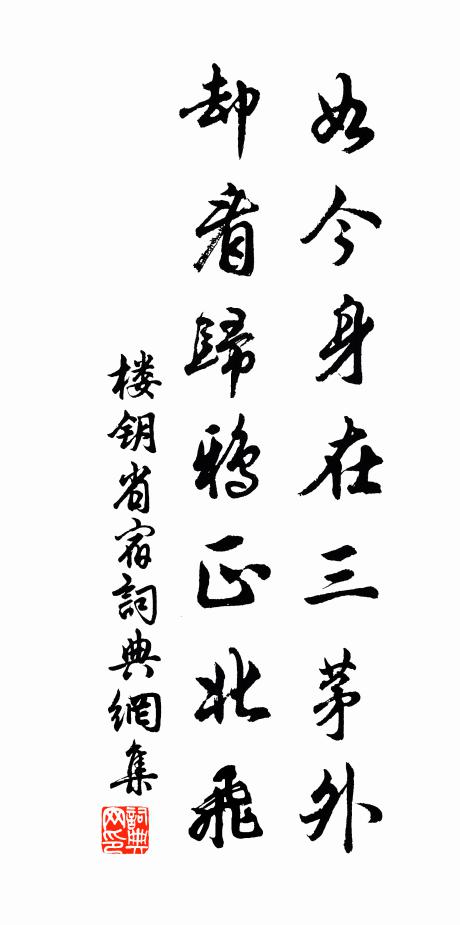 如今身在三茅外
却看歸鴉正北飛
楼钥省宿詞典網集
詞典
网印